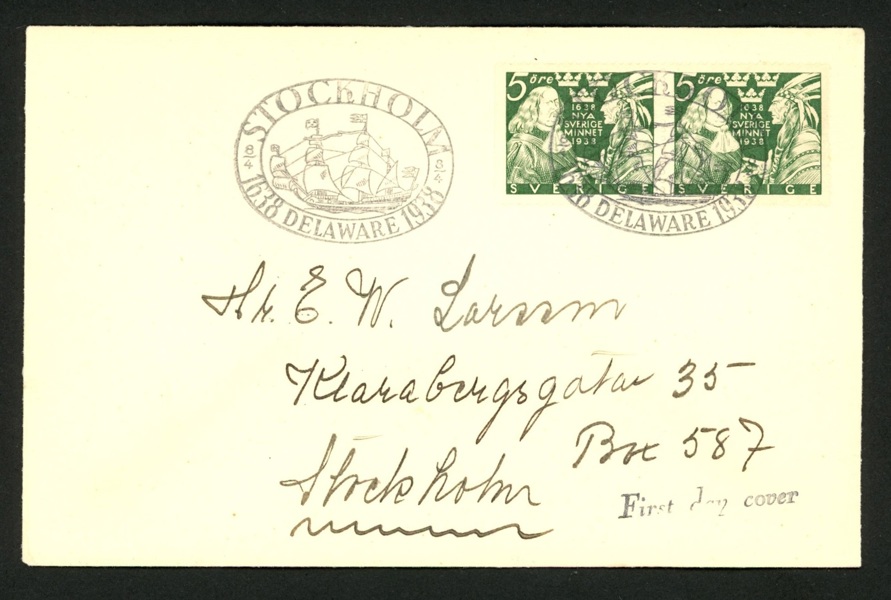 STOCKHOLM
8/4 8/4
1638 DELAWARE 1938
5 öre
1638
NYA
SVERIGE
MINNET
1938
SVERIGE
5 öre
1638
NYA
SVERIGE
MINNET
1938
SVERIGE
DELAWARE 193
Hr. E. W. Larsson
Klarabergsgatan 35
Box 587
Stockholm
First day cover